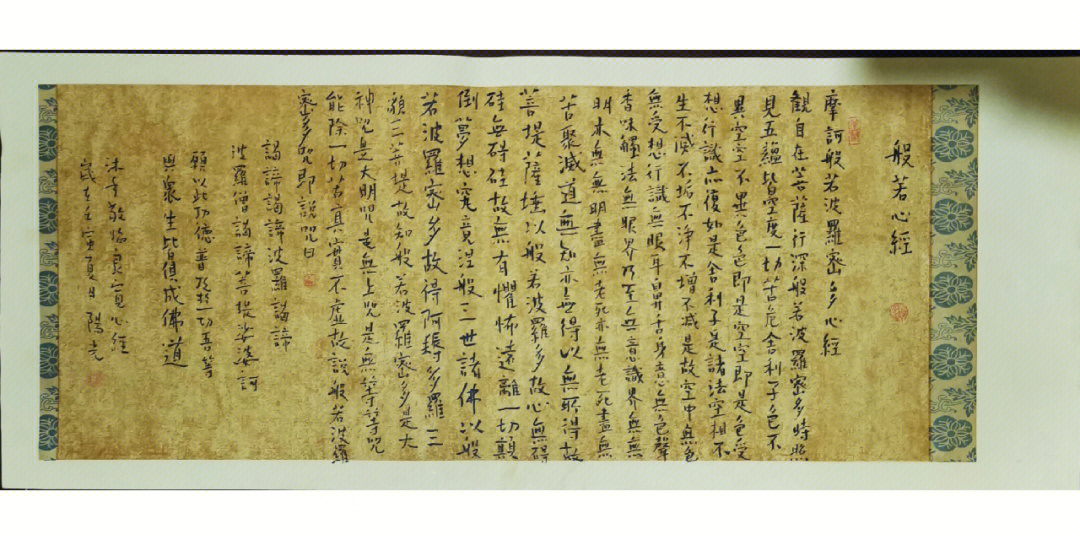 般若心經
摩訶般若波羅蜜多心經
觀自在菩薩行深般若波羅蜜多時照
見五蘊皆空度一切苦厄舍利子色不
異空空不異色色即是空空即是色受
想行識亦復如是舍利子是諸法空相不
生不滅不垢不淨不增不減是故空中無色
無受想行識無眼耳鼻舌身意無色聲
香味觸法無眼界乃至無意識界無無
明亦無無明盡無老死亦無老死盡無
苦聚滅道無知亦無得以無所得故
菩提薩埵以般若波羅多故心無礙
硅無碍硅故無有懼怖遠離一切顛
倒夢想究竟涅般三世諸佛以般
若波羅密多故得阿耨多羅三
藐三菩提故知般若波羅密多是大
神咒是大明咒是無上咒是無等等咒
能除一切苦真實不虛故說般若波羅
密多咒即說咒曰
謁諦謁諦波羅謁諦
波羅僧謁諦菩提娑婆訶
願以此功德普及於一切吾等
與眾生皆俱成佛道
沐手敬
心經
歲在壬寅夏日